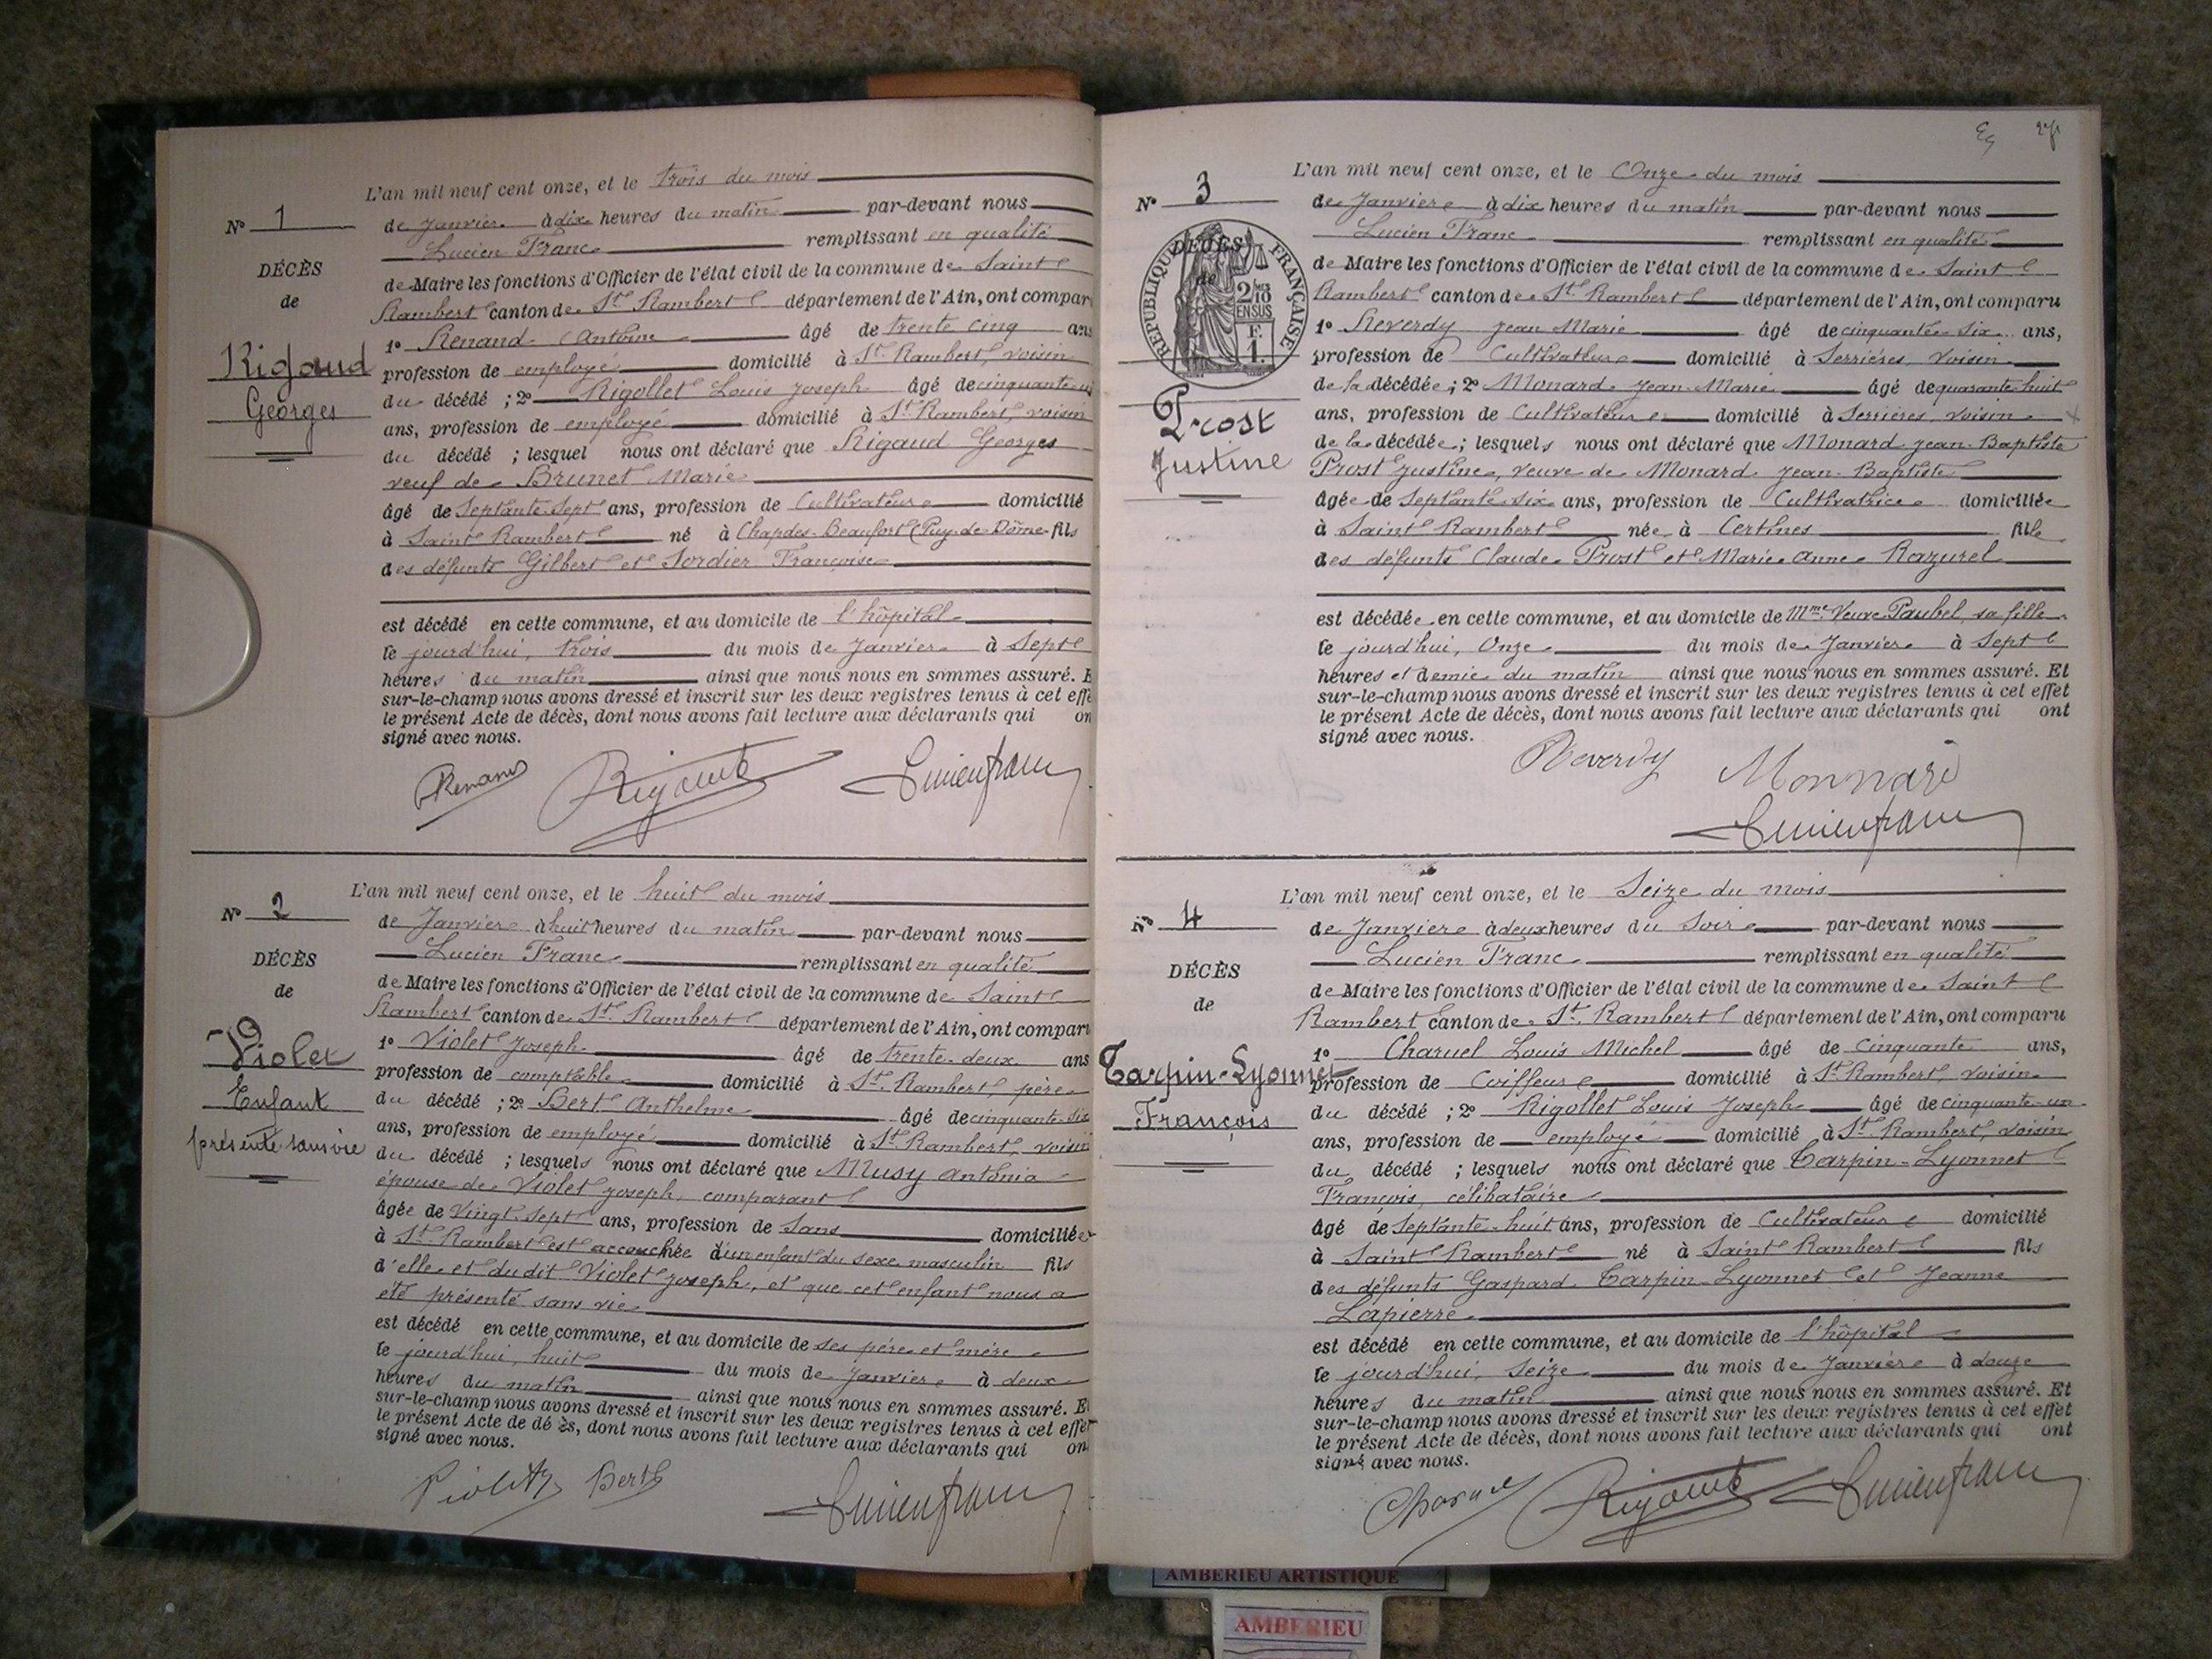 L'an mil neuf cent onze, et le trois du mois
N° 1
de Janvier à dix heures du matin par-devant nous
Lucien Franc remplissant en qualité
DÉCÈS
de Maire les fonctions d'Officier de l'état civil de la commune de Saint
de
Rambert canton de St Rambert département de l'Ain, ont compar
1° Renand Antoine âgé de trente cinq ans
Rigaud
profession de employé domicilié à St Rambert, voisin
Georges
du décédé ; 2° Rigollet Louis Joseph âgé de cinquante-u
ans, profession de employé domicilié à St Rambert, voisin
du décédé ; lesquel nous ont déclaré que Rigaud Georges
veuf de Brunet Marie
âgé de Septante-Sept ans, profession de Cultivateur domicilié
à Saint Rambert né à Chapdes-Beaufort (Puy-de-Dôme fils
des défunts Gilbert et Sordier Françoise
est décédé en cette commune, et au domicile de l'hôpital
le jourd'hui, trois du mois de Janvier à Sept
heures du matin ainsi que nous nous en sommes assuré. E
sur-le-champ nous avons dressé et inscrit sur les deux registres tenus à cet effe
le présent Acte de décès, dont nous avons fait lecture aux déclarants qui on
signé avec nous.
Renand Lucien franc
L'an mil neuf cent onze, et le huit du mois
N° 2
de Janvier à huit heures du matin par-devant nous
Lucien Franc remplissant en qualité
DÉCÈS
de Maire les fonctions d'Officier de l'état civil de la commune de Saint
de
Rambert canton de St Rambert département de l'Ain, ont comparu
1° Violet Joseph âgé de trente-deux ans
Violet
profession de comptable domicilié à St Rambert, père
Enfant
du décédé ; 2° Bert Anthelme âgé de cinquante-six
présenté sans vie
ans, profession de employé domicilié à St Rambert, voisin
du décédé ; lesquels nous ont déclaré que Musy Antonia
épouse de Violet Joseph, comparant
âgée de Vingt-Sept ans, profession de Sans domiciliée
à St Rambert est accouchée d'un enfant du sexe masculin fils
d'elle et du dit Violet Joseph, et que cet enfant nous a
été présenté sans vie
est décédé en cette commune, et au domicile de ses père et mère
le jourd'hui, huit du mois de Janvier à deux
heures du matin ainsi que nous nous en sommes assuré. Et
sur-le-champ nous avons dressé et inscrit sur les deux registres tenus à cet effet
le présent Acte de dé ès, dont nous avons fait lecture aux déclarants qui on
signé avec nous.
Violet Bert Lucien franc
L'an mil neuf cent onze, et le Onze du mois
N° 3
de Janvier à dix heures du matin par-devant nous
Lucien Franc remplissant en qualité
DÉCÈS
de
RÉPUBLIQUE FRANÇAISE
2/10 EN SUS
F. 1.
de Maire les fonctions d'Officier de l'état civil de la commune de Saint
Rambert canton de St Rambert département de l'Ain, ont comparu
1° Reverdy Jean Marie âgé de cinquante-six ans,
profession de Cultivateur domicilié à Serrières, voisin
Prost
Justine
de la décédée ; 2° Monard Jean-Marie âgé de quarante-huit
ans, profession de Cultivateur domicilié à Serrières, voisin
de la décédée ; lesquels nous ont déclaré que Monard Jean-Baptiste
Prost Justine, veuve de Monard Jean-Baptiste
âgée de Septante-six ans, profession de Cultivatrice domiciliée
à Saint Rambert née à Certines fille
des défunts Claude Prost et Marie Anne Razurel
est décédée en cette commune, et au domicile de Mme Veuve Paubel, sa fille
le jourd'hui, Onze du mois de Janvier à Sept
heures et demie du matin ainsi que nous nous en sommes assuré. Et
sur-le-champ nous avons dressé et inscrit sur les deux registres tenus à cet effet
le présent Acte de décès, dont nous avons fait lecture aux déclarants qui ont
signé avec nous.
Reverdy Monnard
Lucien franc
L'an mil neuf cent onze, et le Seize du mois
N° 4
de Janvier à deux heures du Soir par-devant nous
Lucien Franc remplissant en qualité
DÉCÈS
de Maire les fonctions d'Officier de l'état civil de la commune de Saint
de
Rambert canton de St Rambert département de l'Ain, ont comparu
1° Charuel Louis Michel âgé de Cinquante ans,
Tarpin-Lyonnet
profession de Coiffeur domicilié à St Rambert, voisin
François
du décédé ; 2° Rigollet Louis Joseph âgé de cinquante-un
ans, profession de employé domicilié à St Rambert, voisin
du décédé ; lesquels nous ont déclaré que Tarpin-Lyonnet
François, célibataire
âgé de Septante-huit ans, profession de Cultivateur domicilié
à Saint Rambert né à Saint Rambert fils
des défunts Gaspard Tarpin-Lyonnet et Jeanne
Lapierre
est décédé en cette commune, et au domicile de l'hôpital
le jourd'hui, Seize du mois de Janvier à douze
heures du matin ainsi que nous nous en sommes assuré. Et
sur-le-champ nous avons dressé et inscrit sur les deux registres tenus à cet effet
le présent Acte de décès, dont nous avons fait lecture aux déclarants qui ont
signé avec nous.
Charuel Lucien franc
AMBERIEU ARTISTIQUE
AMBERIEU